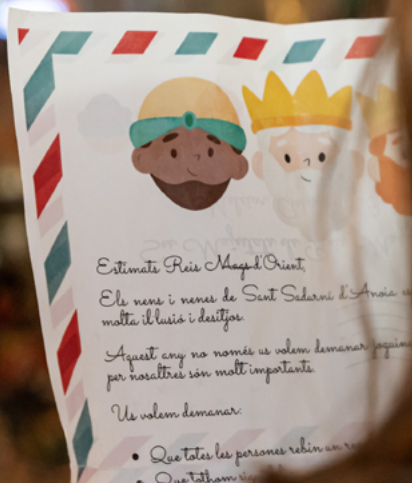 Estimats Reis Mags d'Orient,
Els nens i nenes de Sant Sadurní d'Anoia
molta il·lusió i desitjos.
Aquest any no només us volem demanar
per nosaltres són molt importants.
Us volem demanar:
• Que totes les persones rebin un
• Que tothom